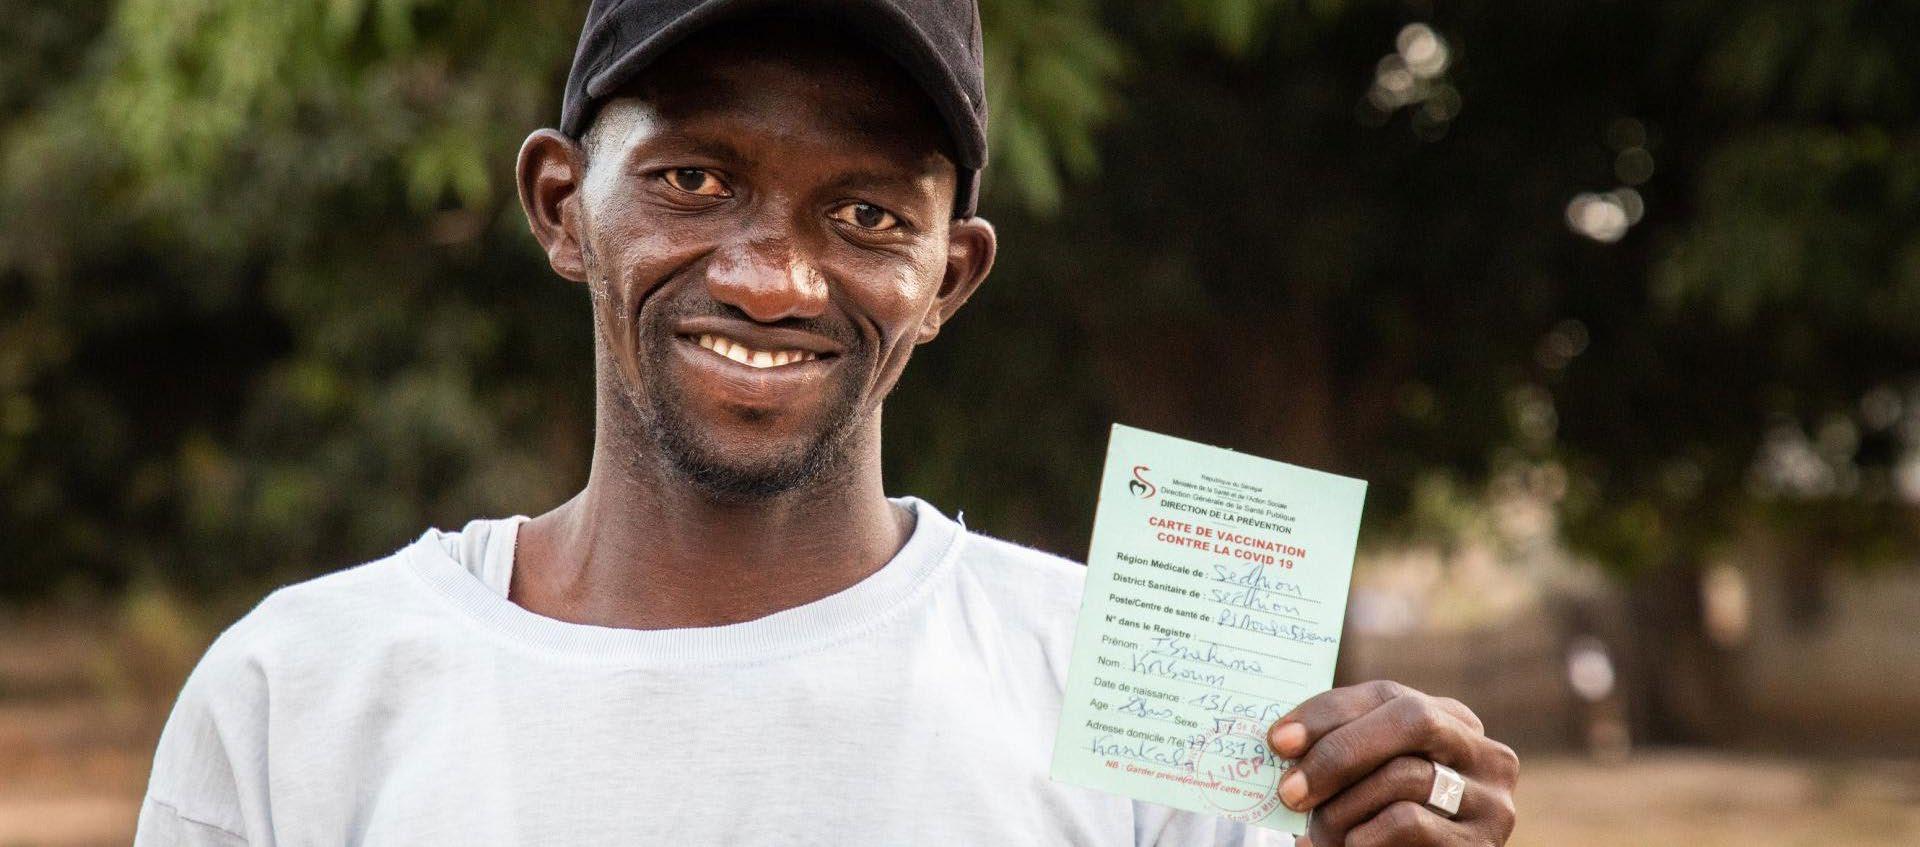 République du Sénégal
Ministère de la Santé et de l'Action Sociale
Direction Générale de la Santé Publique
DIRECTION DE LA PRÉVENTION
CARTE DE VACCINATION
CONTRE LA COVID 19
Région Médicale de : Sédhiou
District Sanitaire de : Sédhiou
Poste/Centre de santé de :
N° dans le Registre :
Prénom : Ibrahima
Nom :
Date de naissance : 13/06/
Age : Sexe :
Adresse domicile /Tél 77 931
NB : Garder précieusement cette carte